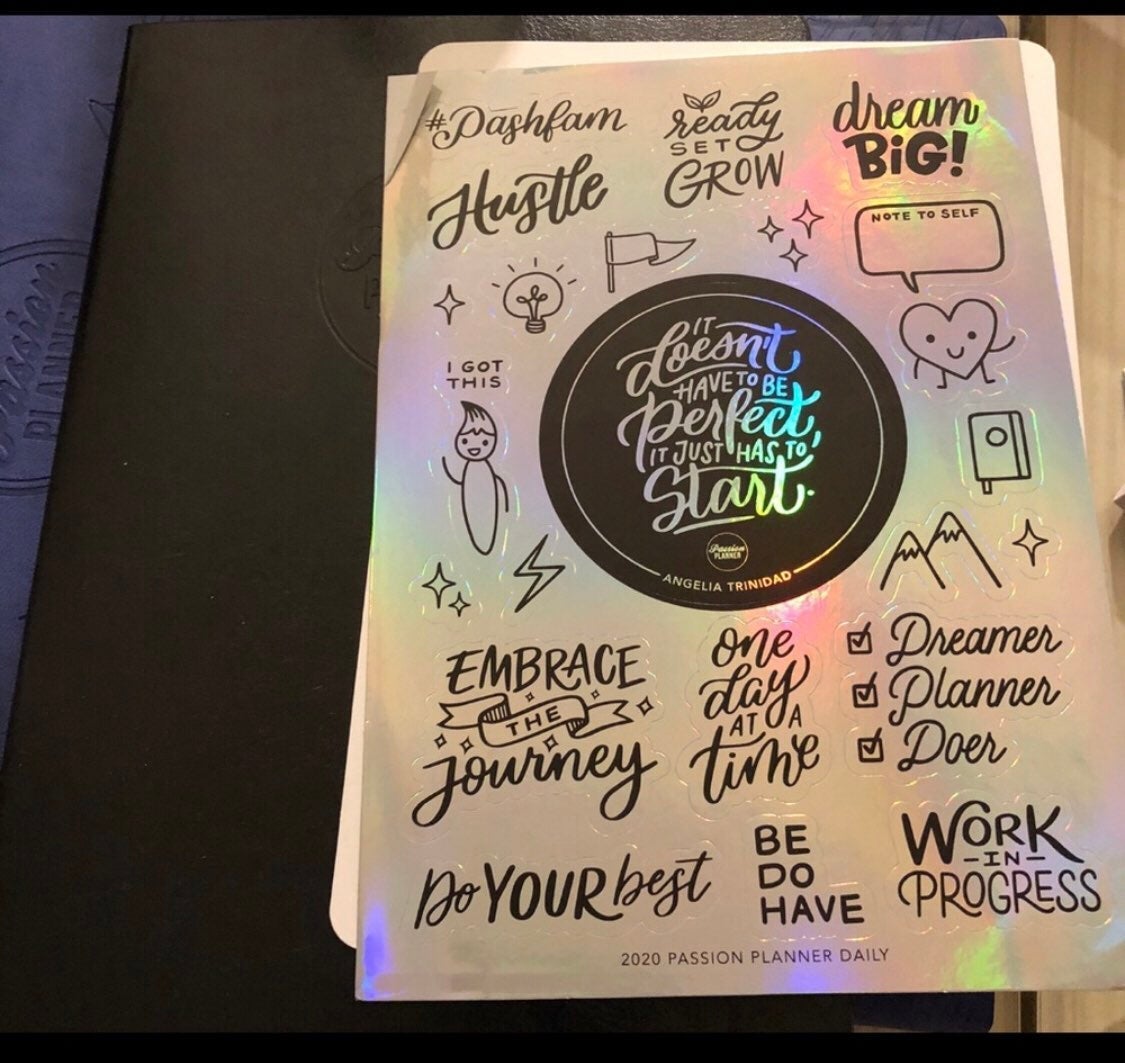 #Pashfam
ready
SET
GROW
dream
BiG!
Hustle
NOTE TO SELF
I GOT
THIS
IT
doesn't
HAVE TO BE
Perfect,
IT JUST HAS TO
Start.
Passion
PLANNER
ANGELIA TRINIDAD
EMBRACE
THE
Journey
one
day
AT A
time
Dreamer
Planner
Doer
Do YOUR best
BE
DO
HAVE
WORK
-IN-
PROGRESS
2020 PASSION PLANNER DAILY
PLANNER